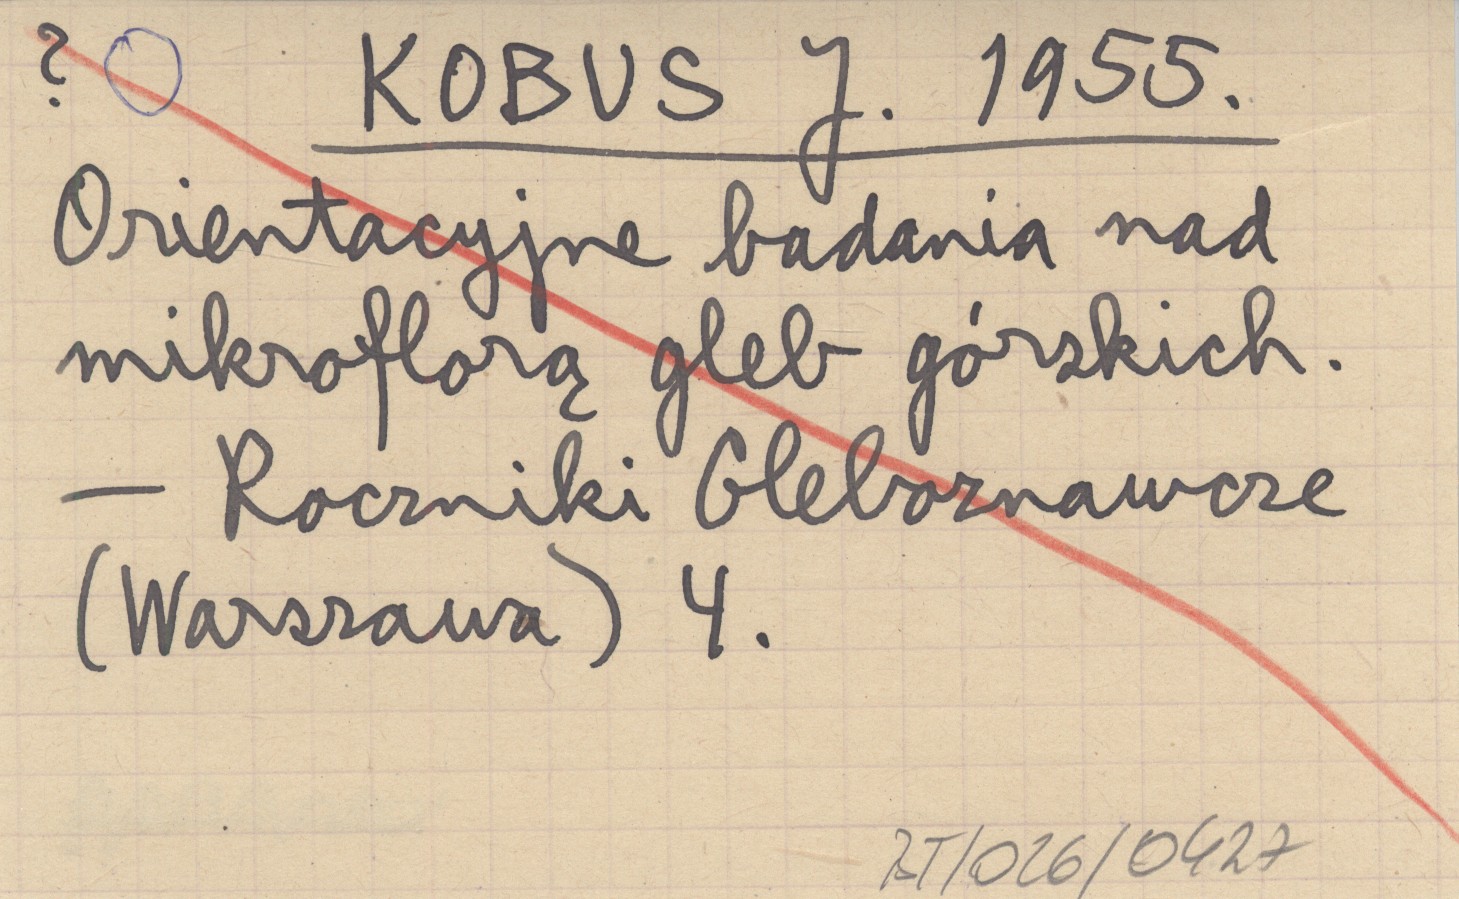 ? KOBUS J. 1955.
Orientacyjne badania nad
mikroflorą gleb górskich.
— Roczniki Gleboznawcze
(Warszawa) 4.